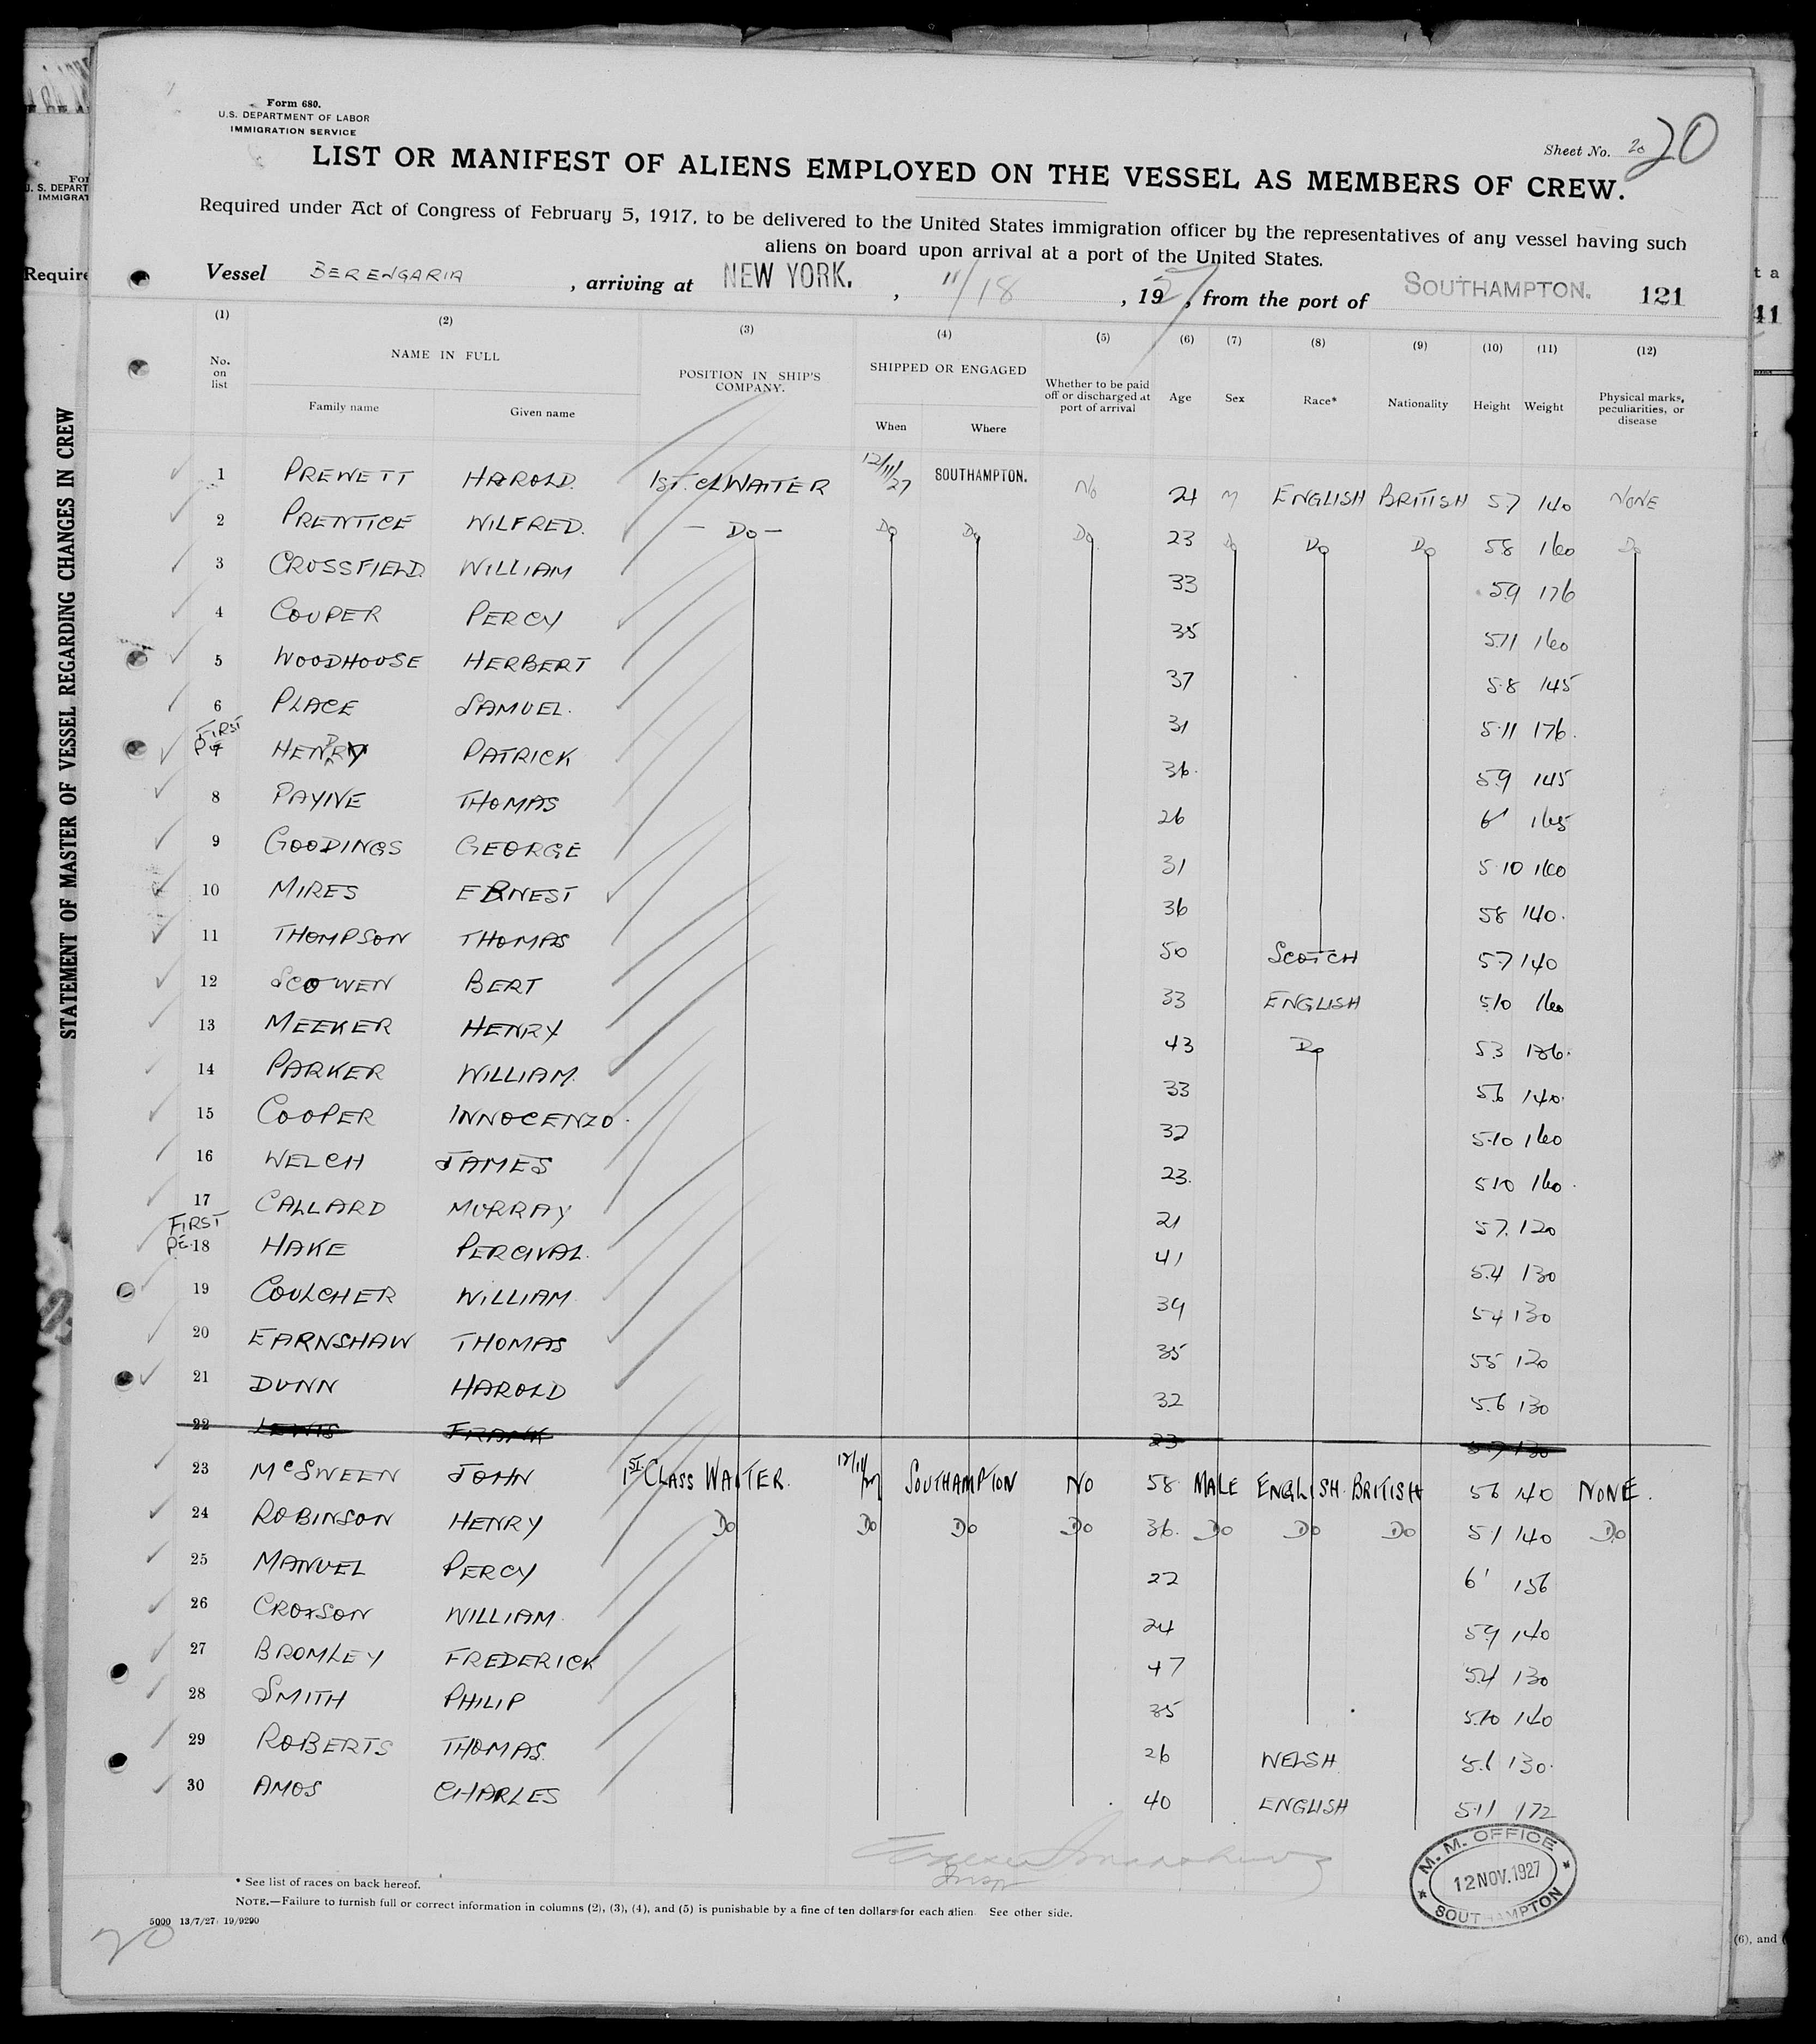 Form 680.
U.S. DEPARTMENT OF LABOR
IMMIGRATION SERVICE
Sheet No. 20 20
LIST OR MANIFEST OF ALIENS EMPLOYED ON THE VESSEL AS MEMBERS OF CREW.
Required under Act of Congress of February 5, 1917, to be delivered to the United States immigration officer by the representatives of any vessel having such
aliens on board upon arrival at a port of the United States.
Vessel BERENGARIA, arriving at NEW YORK., 11/18, 1927, from the port of SOUTHAMPTON. 121
STATEMENT OF MASTER OF VESSEL REGARDING CHANGES IN CREW
(1) (2) (3) (4) (5) (6) (7) (8) (9) (10) (11) (12)
No. on list NAME IN FULL Family name Given name POSITION IN SHIP'S COMPANY. SHIPPED OR ENGAGED When Where Whether to be paid off or discharged at port of arrival Age Sex Race* Nationality Height Weight Physical marks, peculiarities, or disease
1 PREWETT HAROLD. 1ST. CL WAITER 12/11/27 SOUTHAMPTON. NO 24 M ENGLISH BRITISH 5.7 140 NONE
2 PRENTICE WILFRED. - DO - DO DO DO 23 DO DO DO 58 160 DO
3 CROSSFIELD WILLIAM 33 5.9 176
4 COUPER PERCY 35 5.11 160
5 WOODHOUSE HERBERT 37 5.8 145
6 PLACE SAMUEL. 31 5.11 176.
FIRST
7 PATRICK 36. 5.9 145
8 PAYNE THOMAS 26 6' 165
9 GOODINGS GEORGE 31 5.10 160
10 MIRES ERNEST 36 58 140.
11 THOMPSON THOMAS 50 SCOTCH 5.7 140
12 SCOWEN BERT 33 ENGLISH 5.10 160
13 MEEKER HENRY 43 DO 5.3 136.
14 PARKER WILLIAM. 33 5.6 140.
15 COOPER INNOCENZO. 32 5.10 160
16 WELCH JAMES 23. 5.10 160.
17 CALLARD MURRAY 21 5.7. 120
FIRST
18 HAKE PERCIVAL. 41 5.4 130
19 COULCHER WILLIAM 39 5.4 130
20 EARNSHAW THOMAS 35 55 120
21 DUNN HAROLD 32 5.6 130
22 LEWIS FRANK 23 5.7 130
23 McSWEEN JOHN 1ST. CLASS WAITER. 12/11/27 SOUTHAMPTON NO 58 MALE ENGLISH BRITISH 56 140 NONE.
24 ROBINSON HENRY DO DO DO DO 36. DO DO DO 5.1 140 DO
25 MANUEL PERCY 22 6' 156
26 CROXSON WILLIAM. 24 5.9 140
27 BROMLEY FREDERICK 47 5.4 130
28 SMITH PHILIP 35 5.10 140
29 ROBERTS THOMAS. 26 WELSH 5.6 130.
30 AMOS CHARLES 40 ENGLISH 5.11 172
* See list of races on back hereof.
NOTE.—Failure to furnish full or correct information in columns (2), (3), (4), and (5) is punishable by a fine of ten dollars for each alien. See other side.
5000 13/7/27 19/9290
20
M. M. OFFICE
12 NOV. 1927
SOUTHAMPTON